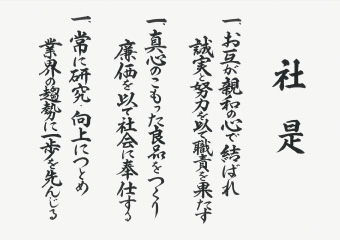 社是
一、お互が親和の心で結ばれ
誠実と努力を以て職責を果たす
一、真心のこもった良品をつくり
廉価を以て社会に奉仕する
一、常に研究・向上につとめ
業界の趨勢に一歩を先んじる